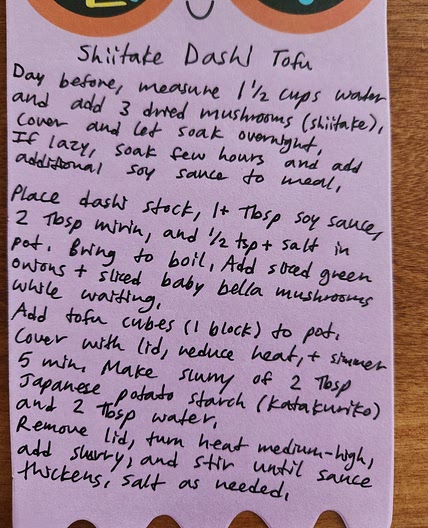 Shiitake Dashi Tofu
Day before, measure 1 1/2 cups water
and add 3 dried mushrooms (shiitake).
Cover and let soak overnight.
If lazy, soak few hours and add
additional soy sauce to meal.
Place dashi stock, 1+ Tbsp soy sauce,
2 Tbsp mirin, and 1/2 tsp + salt in
pot. Bring to boil. Add sliced green
onions + sliced baby bella mushrooms
while waiting.
Add tofu cubes (1 block) to pot.
Cover with lid, reduce heat, + simmer
5 min. Make slurry of 2 Tbsp
Japanese potato starch (Katakuriko)
and 2 Tbsp water.
Remove lid, turn heat medium-high,
add slurry, and stir until sauce
thickens. Salt as needed.